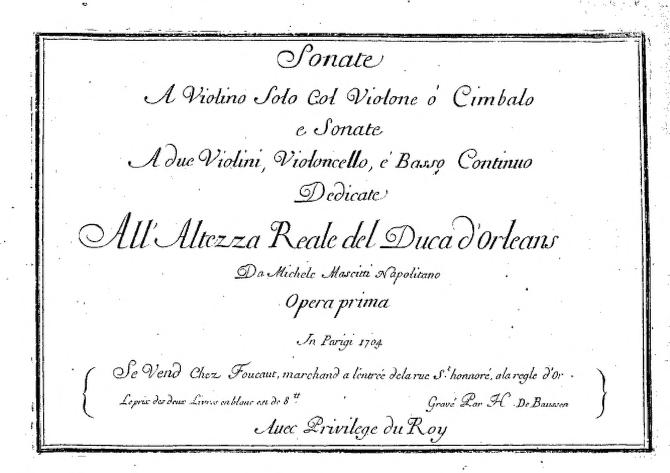 Sonate
A Violino Solo Col Violone ò Cimbalo
e Sonate
A due Violini, Violoncello, è Basso Continuo
Dedicate
All' Altezza Reale del Duca d'Orleans
Da Michele Mascitti Napolitano
Opera prima
In Parigi 1704
Se Vend Chez Foucaut, marchand a l'entrée dela rue S.t honnoré, ala regle d'Or.
Le prix des deux Livres en blanc est de 8tt
Gravé Par H. De Baussen
Avec Privilege du Roy